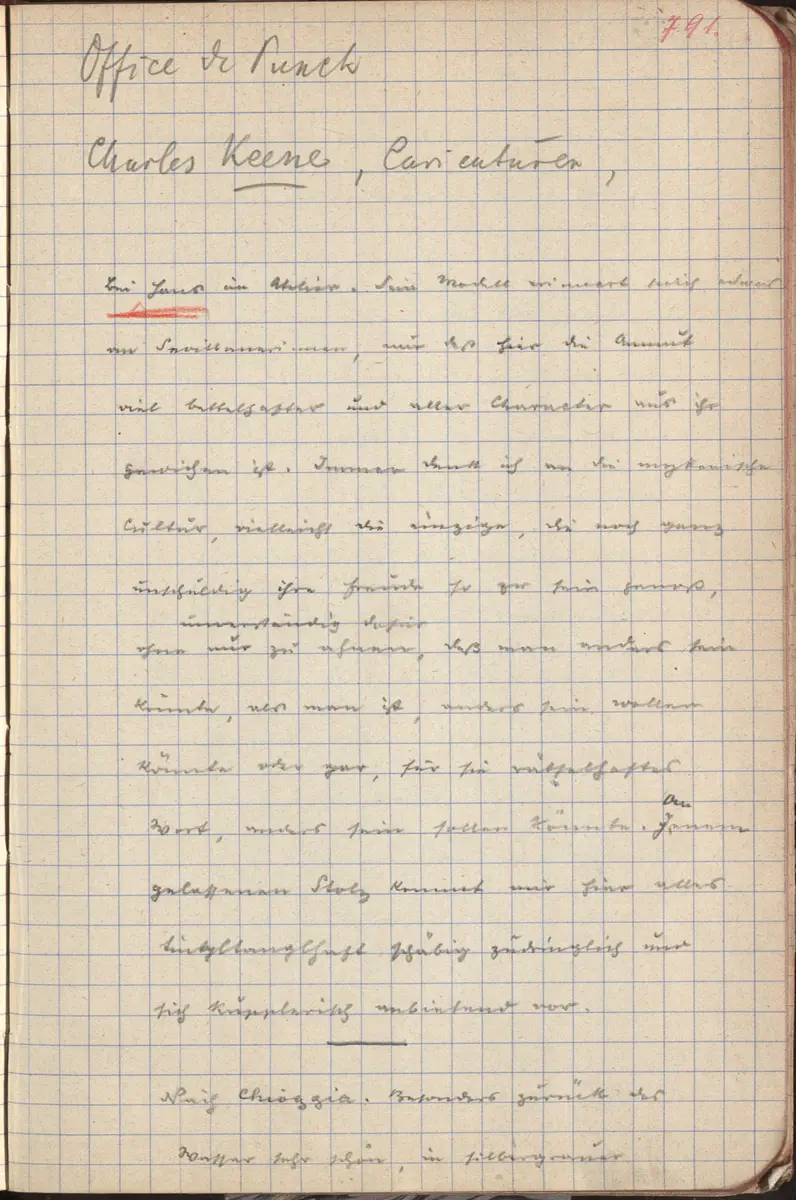 791.
Office de Punch
Charles Keene, Caricaturen,
Bei Hans im Atelier. Sein Modell erinnert mich etwas
an Sevillanerinnen, nur daß hier die Anmut
viel bettelhafter und aller Character aus ihr
gewichen ist. Immer denk ich an die mykenische
Cultur, vielleicht die einzige, die noch ganz
unschuldig ihre Freude so zu sein genoß,
unverständig dafür
ohne nur zu ahnen, daß man anders sein
könnte, als man ist, anders sein wollen
könnte oder gar, für sie rätselhaftes
Wort, anders sein sollen könnte. An Jenem
gelassenen Stolz kommt mir hier alles
tingltanglhaft schäbig zudringlich und
sich kupplerisch anbietend vor.
Nach Chioggia. Besonders zurück das
Wasser sehr schön, in silbergrauer